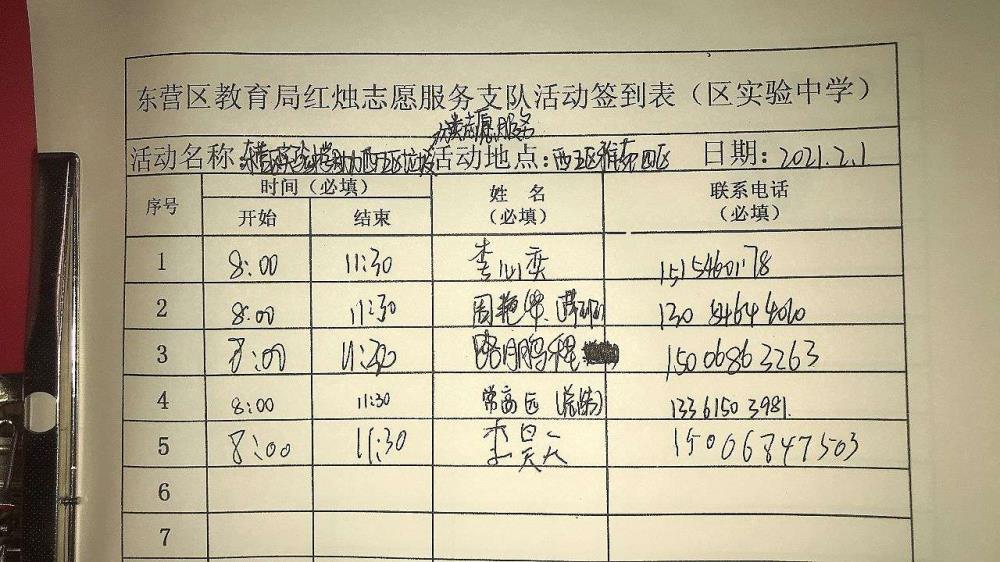 东营区教育局红烛志愿服务支队活动签到表（区实验中学）
分类志愿服务
活动名称： 活动地点：西五区 日期：2021.2.1
序号 时间（必填） 姓名（必填） 联系电话（必填）
开始 结束
1 8:00 11:30 李心奕 15154601178
2 8:00 11:30 周艳华 130 8464 4010
3 8:00 11:30 路鹏程 15006863263
4 8:00 11:30 常高远 13361503981.
5 8:00 11:30 李昊天 15006847503
6
7